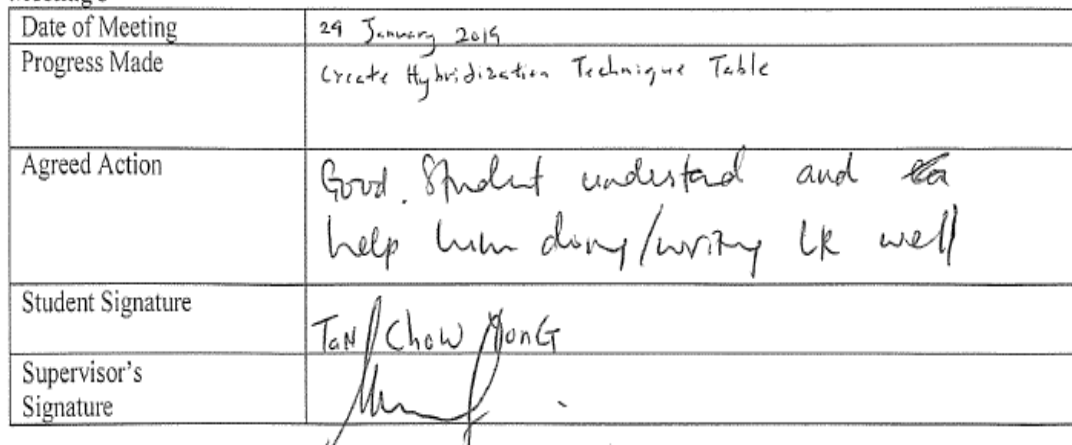 Date of Meeting 29 January 2019
Progress Made Create Hybridization Technique Table
Agreed Action Good. Student understand and
help him doing/writing LR well
Student Signature TaN ChoW YonG
Supervisor's
Signature